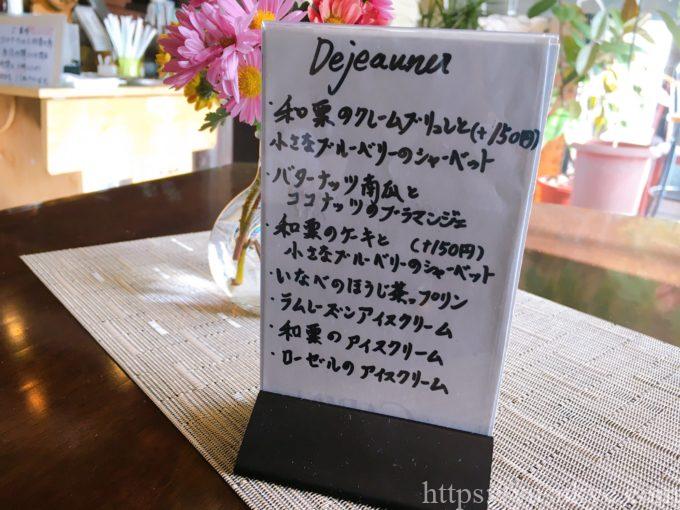 Dejeauner
・和栗のクレームブリュレと(+150円)
小さなブルーベリーのシャーベット
・バターナッツ南瓜と
ココナッツのブラマンジェ
・和栗のケーキと (+150円)
小さなブルーベリーのシャーベット
・いなべのほうじ茶っプリン
・ラムレーズンアイスクリーム
・和栗のアイスクリーム
・ローゼルのアイスクリーム